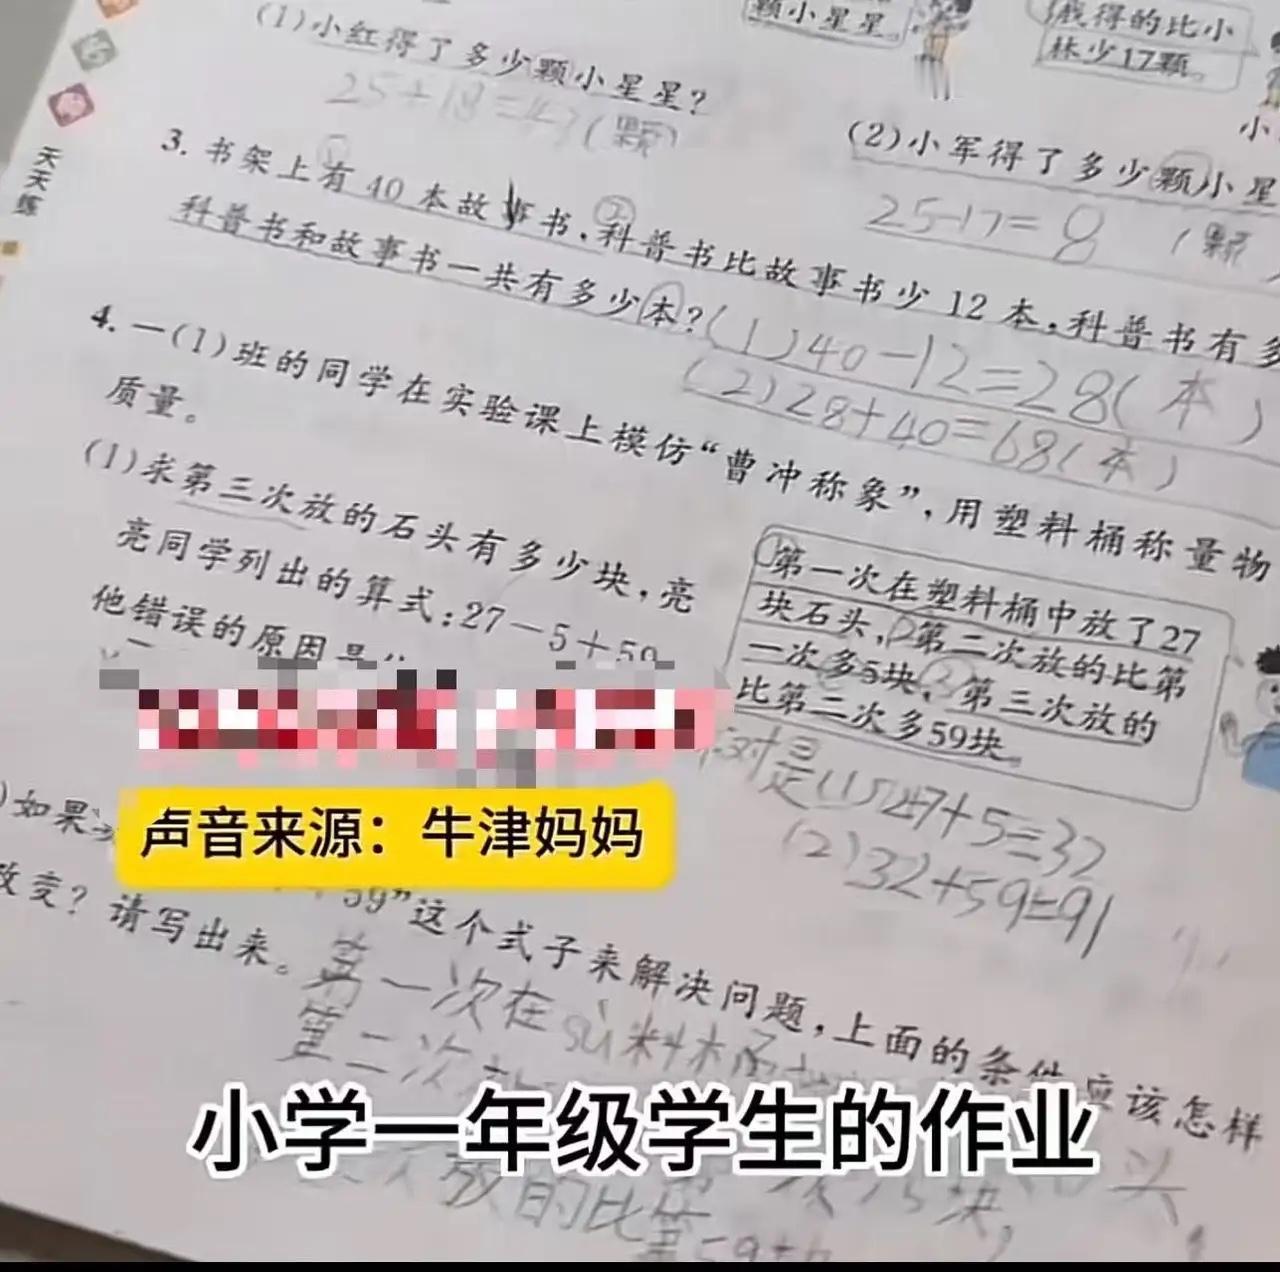 颗小星星。
我得的比小
林少17颗。
(1)小红得了多少颗小星星?
25+18=43(颗)
(2)小军得了多少颗小星
25-17=8(颗
天天练
3. 书架上有40本故事书,科普书比故事书少12本,科普书有多
科普书和故事书一共有多少本?
(1)40-12=28(本)
(2)28+40=68(本)
4. 一(1)班的同学在实验课上模仿“曹冲称象”,用塑料桶称量物
质量。
(1)求第三次放的石头有多少块,亮
亮同学列出的算式:27-5+59
他错误的原因是什
第一次在塑料桶中放了27
块石头,第二次放的比第
一次多5块,第三次放的
比第二次多59块。
对是(1)27+5=32
(2)32+59=91
声音来源:牛津妈妈
)如果
59”这个式子来解决问题,上面的条件应该怎样
改变?请写出来。
第一次在sù料桶
第二次
小学一年级学生的作业
块,
头,
放的比第